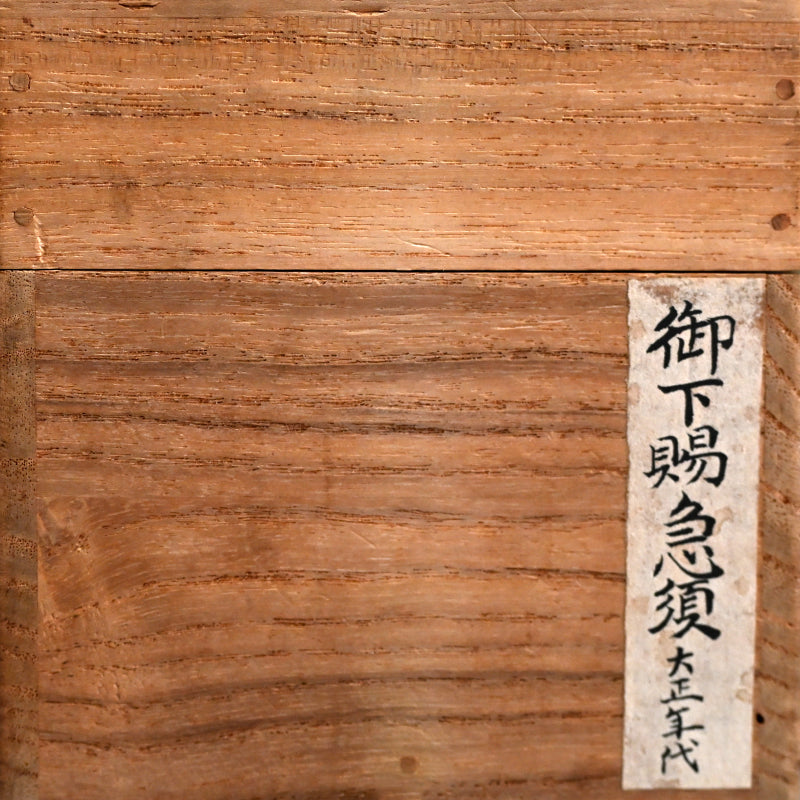 御下賜急須 大正年代